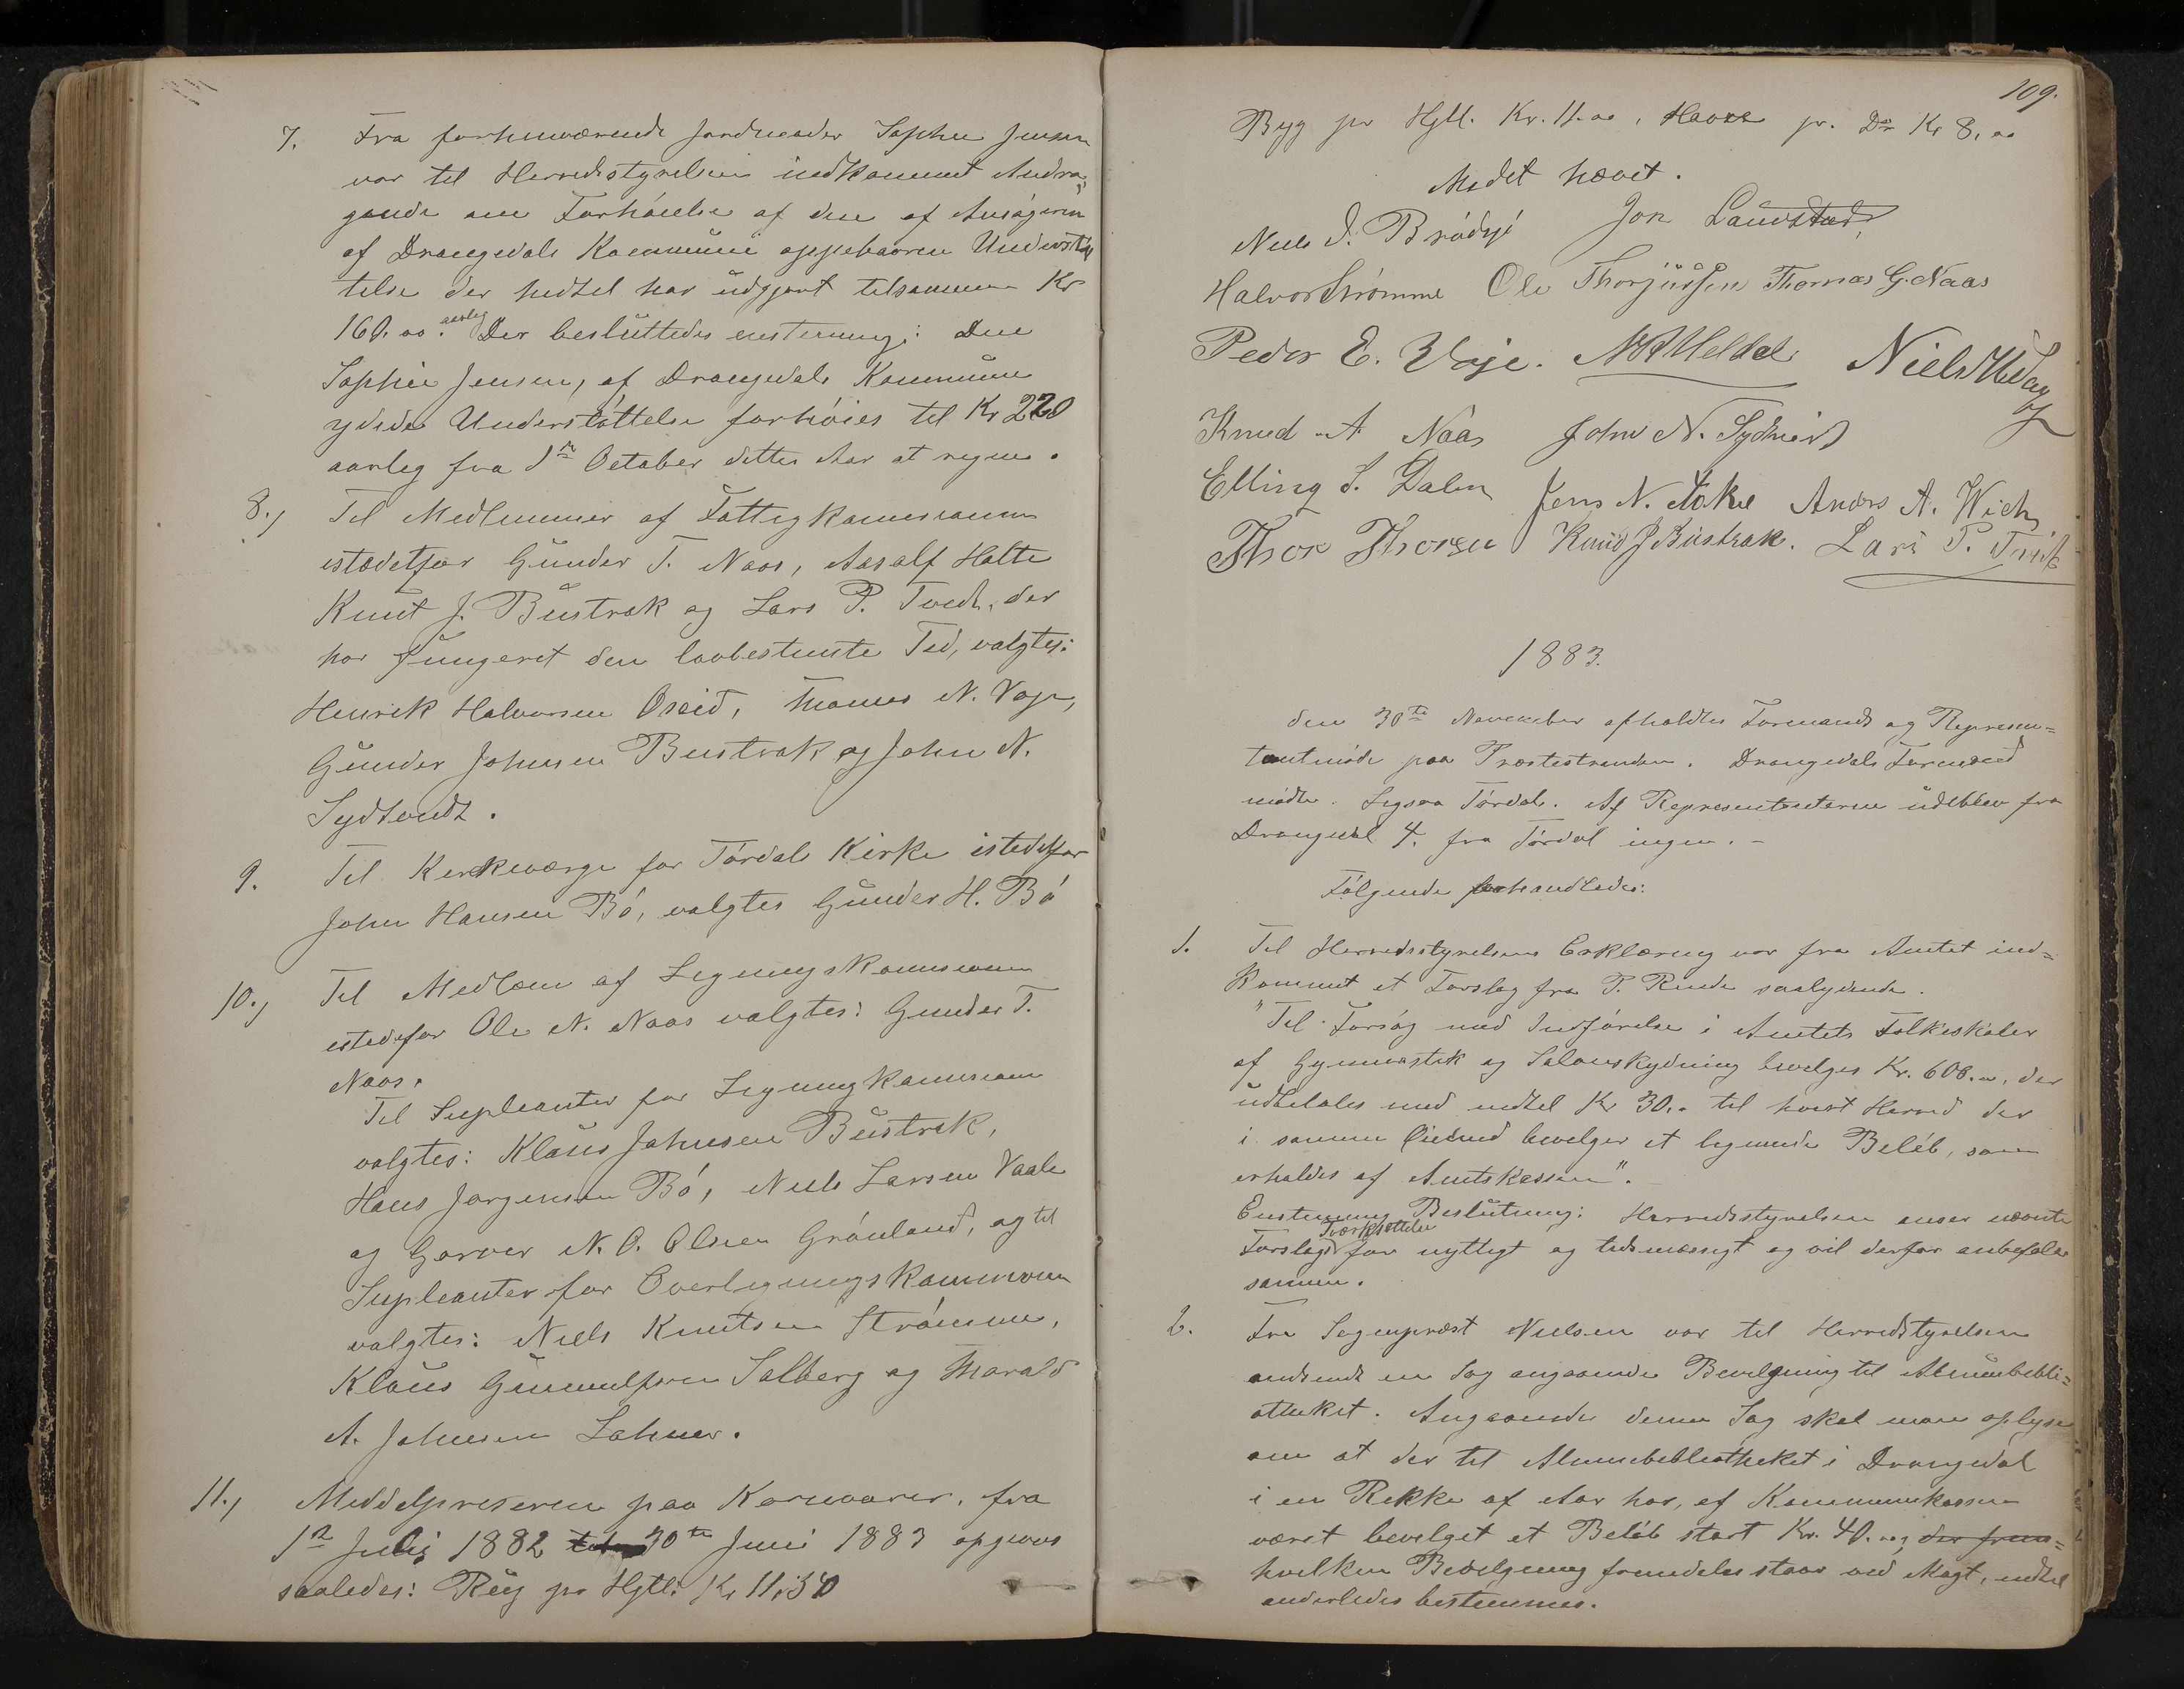 7. Fra forhenværende Jordmoder Sophie Jensen
var til Herredsstyrelsen indkommet Andra,
gende om Forhöielse af den af Ansögeren
af Drangedals Kommune oppebaaren Understöt
telse der hidtil har udgjort tilsammen Kr
160.00. aarlig Der besluttedes enstemmig: Den
Sophie Jensen, af Drangedals Kommune
ydede Understöttelse forhöies til Kr 220
aarlig fra 1ste October dette Aar at regne.
8., Til Medlemmer af Fattigkommissionen
istedetfor Gunder T. Naas, Aasalf Holte
Knut J. Bustrak og Lars P. Tvedt, der
har fungeret den lovbestemte Tid, valgtes:
Henrik Halvorsen Oseid, Thomas N. Voje,
Gunder Johnsen Bustrak og John N.
Sydtvedt.
9. Til Kirkeværge for Tördal Kirke istedetfor
John Hansen Bö, valgtes Gunder H. Bö
10., Til Medlem af Ligningskommissionen
istedetfor Ole N. Naas valgtes: Gunder T.
Naas.
Til Supleanter for Ligningskommissionen
valgtes: Klaus Johnsen Bustrak,
Hans Jørgensen Bö, Niels Larsen Vaale
og Garver N. O. Olsen Grönland, og til
Supleanter for Overligningskommissionen
valgtes: Niels Knutsen Strömme,
Klaus Gunnulfsen Solberg og Tharald
A. Johnsen Lohner.
11., Middelpriserne paa Kornvarer, fra
1ste Juli 1882 til 30te Juni 1883 opgives
saaledes: Rug pr Hgtl. Kr 11.30
109.
Byg pr Hgtl. Kr. 11.00, Havre pr. Do Kr 8,00
Mödet hævet.
Niels J. Brödsjö Jon Landstad,
Halvor Strømme Ole Thorjussen Thomas G. Naas
Peder E. Voje. Niels
Knud A Naas John N. Sydtvedt
Elling S. Dalen Jens N. Anders A. Wich
Thor Thorsen Knud J Bustrak. Lars P. Tvedt
1883.
den 30te November afholdtes Formands og Represen=
tantmöde paa Præstestranden. Drangedals Formænd
mödte. Ligesaa Tördal. Af Representanterne udeblev fra
Drangedal 4. fra Tördal ingen. -
Fölgende forhandledes:
1. Til Herredsstyrelsens Erklæring var fra Amtet ind=
kommet et Forslag fra P. Rinde saalydende.
"Til Forsög med Indförelse i Amtets Folkeskoler
af Gymnastik og Salonskydning bevilges Kr. 600.00, der
udbetales med indtil Kr 30,- til hvert Herred der
i samme Öiemed bevilger et lignende Belöb, som
erholdes af Amtskassen".
Enstemmig Beslutning: Herredsstyrelsen anser nævnte
Forslags Iværksættelse for nyttigt og tidsmæssigt og vil derfor anbefale
samme.
2. Fra Sogneprest Nielsen var til Herredsstyrelsen
indsendt en Sag angaaende Bevilgning til Almuebibli=
otheket. Angaaende denne Sag skal man oplyse
om at der til Almuebibliotheket i Drangedal
i en Rekke af Aar har, af Kommunekassen
været bevilget et Belöb stort Kr. 40.00, der frem=
hvilken Bevilgning fremdeles staar ved Magt, indtil
anderledes bestemmes.